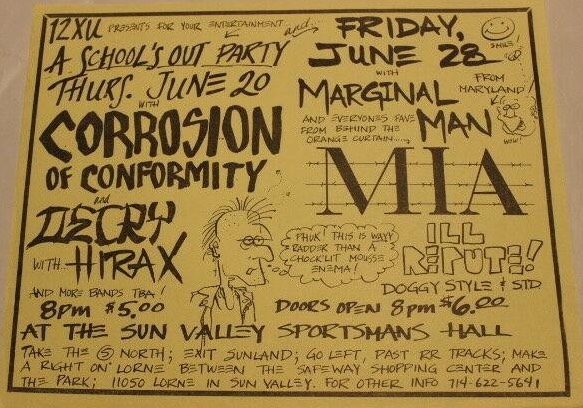 12XU PRESENTS FOR YOUR ENTERTAINMENT
A SCHOOL'S OUT PARTY
THURS. JUNE 20
WITH
CORROSION
OF CONFORMITY
and
DECRY
WITH HIRAX
AND MORE BANDS TBA!
8pm $5.00
and...
FRIDAY,
JUNE 28
SMILE!
WITH
MARGINAL
MAN
FROM
MARYLAND!
WOW!
AND EVERYONES FAVE
FROM BEHIND THE
ORANGE CURTAIN.....
MIA
PHUK! THIS IS WAYY
RADDER THAN A
CHOCK'LIT MOUSSE
ENEMA!
ILL
REPUTE!
DOGGY STYLE & STD.
DOORS OPEN 8pm $6.00
AT THE SUN VALLEY SPORTSMANS HALL
TAKE THE 5 NORTH; EXIT SUNLAND; GO LEFT, PAST RR TRACKS; MAKE
A RIGHT ON LORNE BETWEEN THE SAFEWAY SHOPPING CENTER AND
THE PARK; 11050 LORNE IN SUN VALLEY. FOR OTHER INFO 714-622-5641